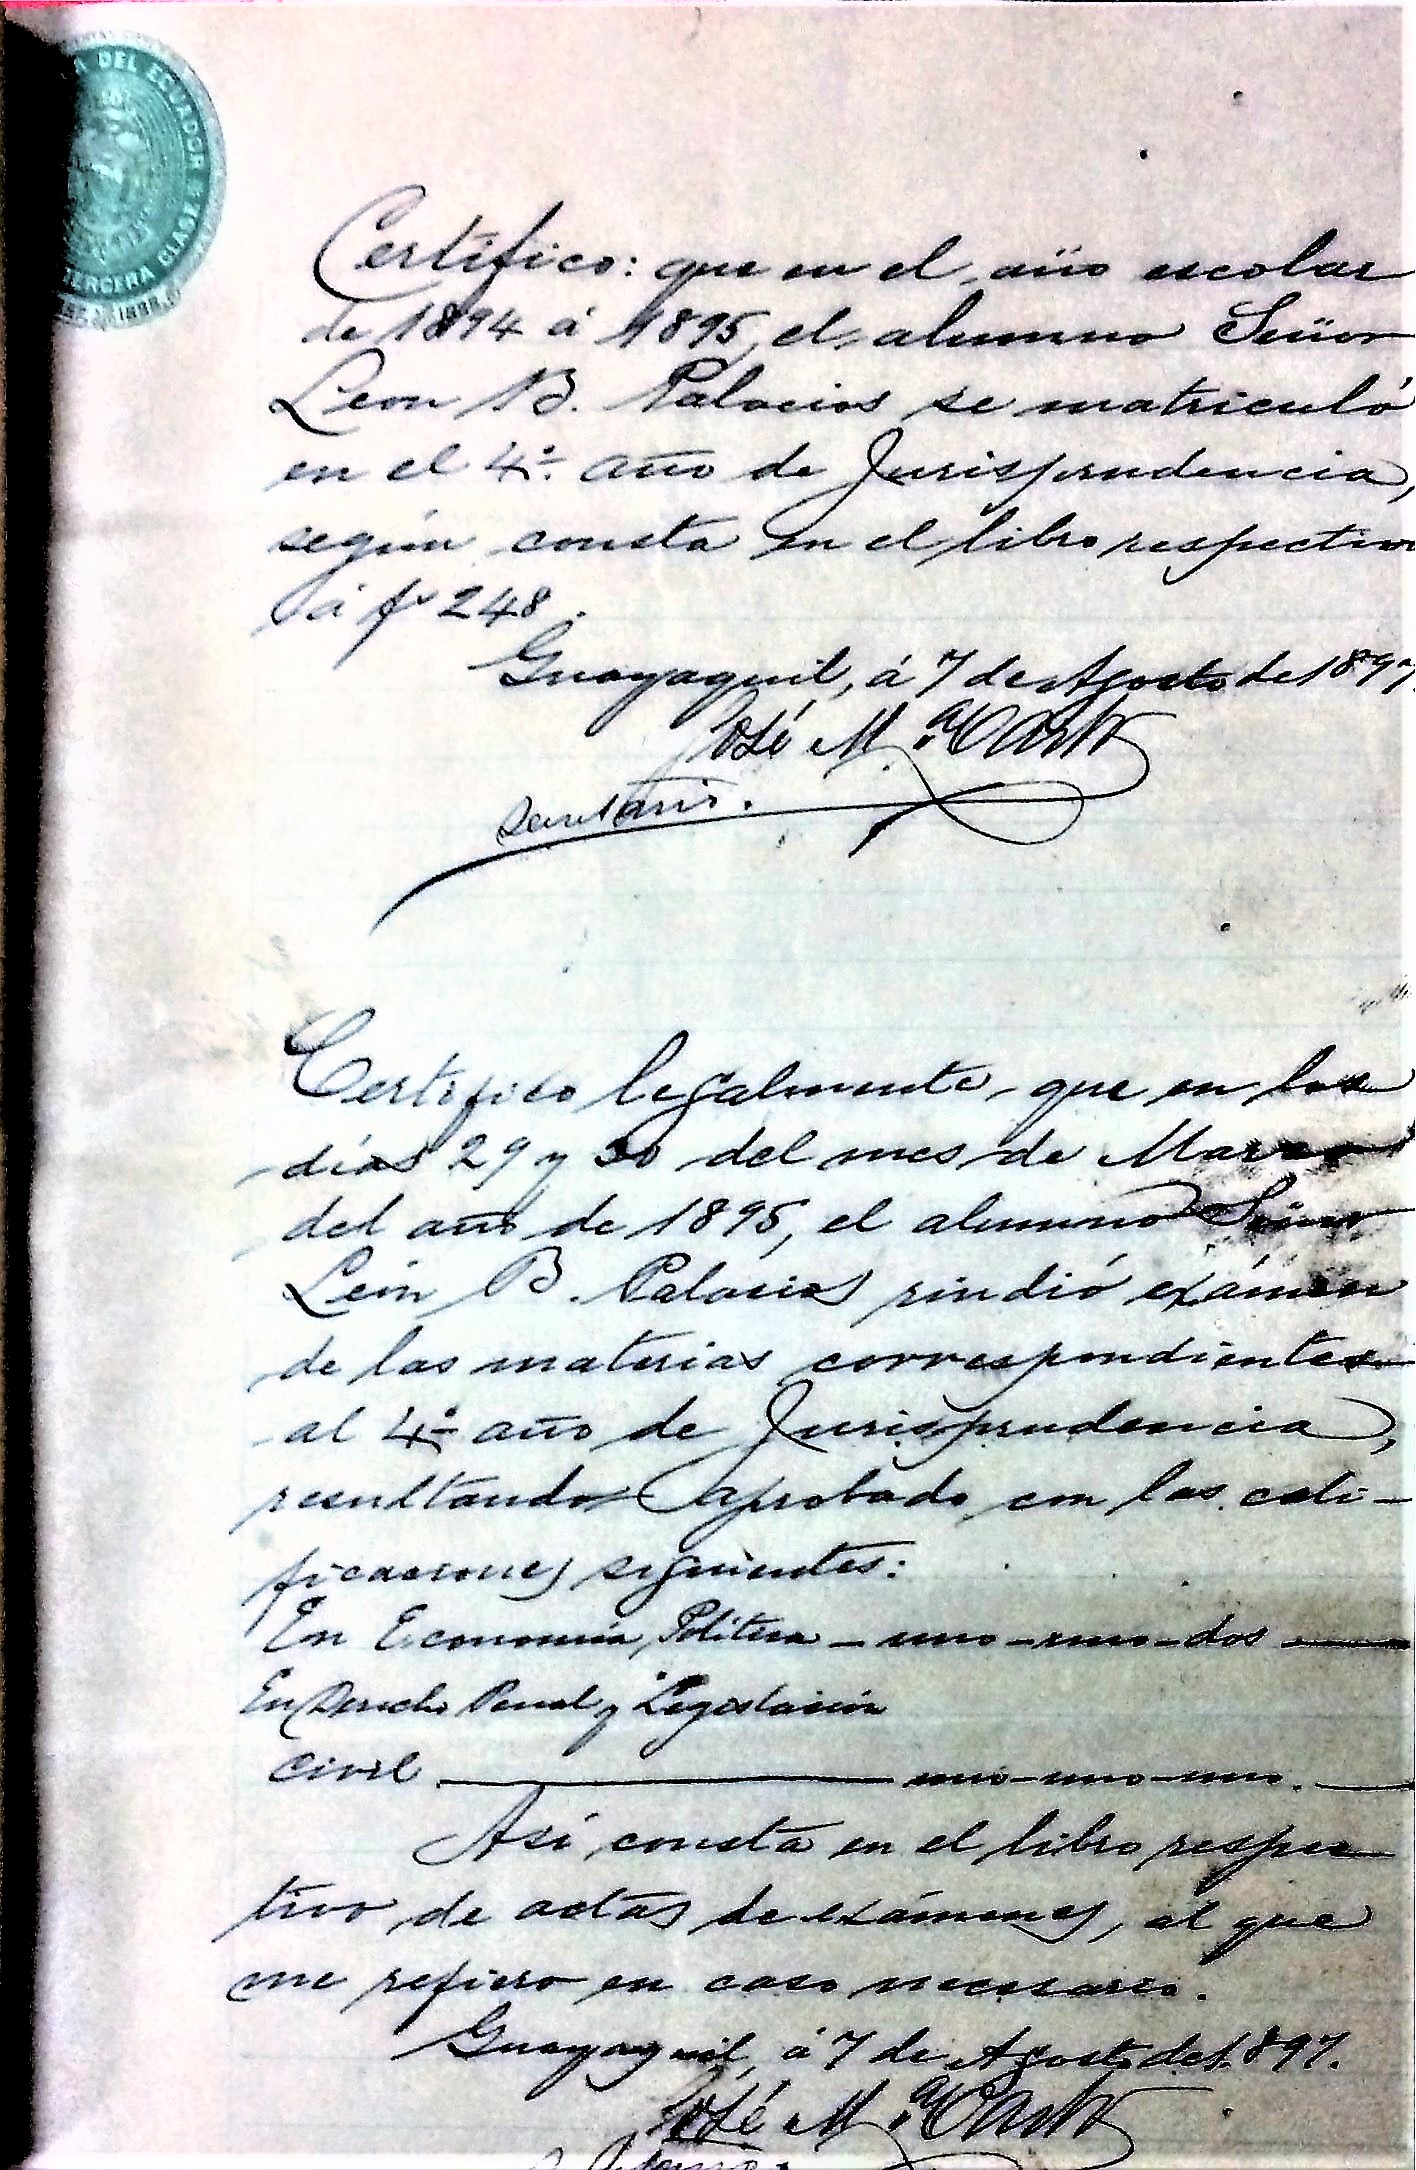 DEL ECUADOR
TERCERA CLASE
Certifico: que en el año escolar
de 1894 á 1895, el alumno Señor
Leon B. Palacios se matriculó
en el 4º. año de Jurisprudencia,
según consta en el libro respectivo
á fs 248.
Guayaquil, á 7 de Agosto de 1897.
José M.ª
Secretario.
Certifico legalmente, que en los
días 29 y 30 del mes de Marzo
del año de 1895, el alumno Señor
León B. Palacios rindió exámen
de las materias correspondientes
al 4º año de Jurisprudencia,
resultando aprobado con las cali-
ficaciones siguientes:
En Economía Política - uno - uno - dos
En Derecho Penal y Legislación
Civil uno - uno - uno.
Así consta en el libro respec
tivo de actas de exámenes, al que
me refiero en caso necesario.
Guayaquil, á 7 de Agosto de 1897.
José M.ª